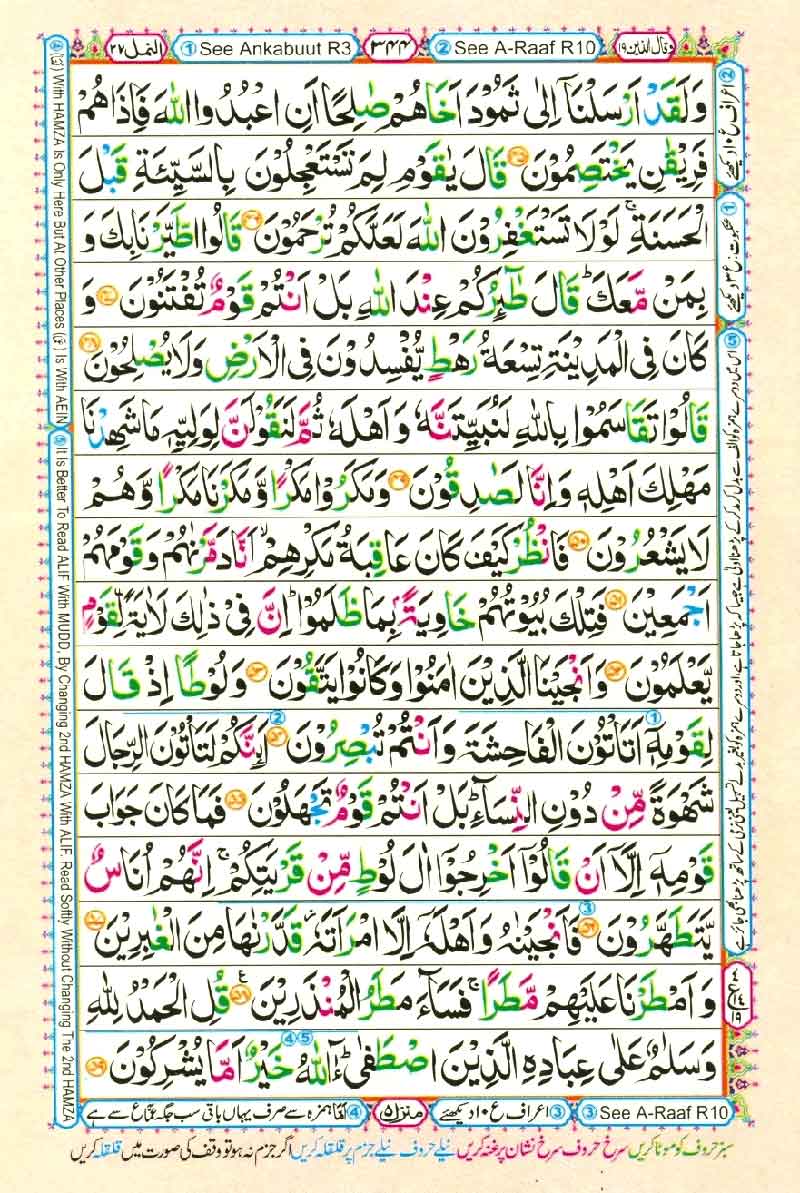 وقال الذین ۱۹
② See A-Raaf R10
۳۴۴
① See Ankabuut R3
النمل ۲۷
وَلَقَدْ اَرْسَلْنَاۤ اِلٰى ثَمُوْدَ اَخَاهُمْ صٰلِحًا اَنِ اعْبُدُوا اللّٰهَ فَاِذَا هُمْ
فَرِيْقٰنِ يَخْتَصِمُوْنَ ۴۵ قَالَ يٰقَوْمِ لِمَ تَسْتَعْجِلُوْنَ بِالسَّيِّئَةِ قَبْلَ
الْحَسَنَةِ ۚ لَوْلَا تَسْتَغْفِرُوْنَ اللّٰهَ لَعَلَّكُمْ تُرْحَمُوْنَ ۴۶ قَالُوا اطَّيَّرْنَا بِكَ وَ
بِمَنْ مَّعَكَ ؕ قَالَ طٰٓئِرُكُمْ عِنْدَ اللّٰهِ بَلْ اَنْتُمْ قَوْمٌ تُفْتَنُوْنَ ۴۷ وَ
كَانَ فِى الْمَدِيْنَةِ تِسْعَةُ رَهْطٍ يُّفْسِدُوْنَ فِى الْاَرْضِ وَلَا يُصْلِحُوْنَ ۴۸
قَالُوْا تَقَاسَمُوْا بِاللّٰهِ لَنُبَيِّتَنَّهٗ وَاَهْلَهٗ ثُمَّ لَنَقُوْلَنَّ لِوَلِيِّهٖ مَا شَهِدْنَا
مَهْلِكَ اَهْلِهٖ وَاِنَّا لَصٰدِقُوْنَ ۴۹ وَمَكَرُوْا مَكْرًا وَّمَكَرْنَا مَكْرًا وَّهُمْ
لَا يَشْعُرُوْنَ ۵۰ فَانْظُرْ كَيْفَ كَانَ عَاقِبَةُ مَكْرِهِمْ ۙ اَنَّا دَمَّرْنٰهُمْ وَقَوْمَهُمْ
اَجْمَعِيْنَ ۵۱ فَتِلْكَ بُيُوْتُهُمْ خَاوِيَةًۢ بِمَا ظَلَمُوْا ؕ اِنَّ فِىْ ذٰلِكَ لَاٰيَةً لِّقَوْمٍ
يَّعْلَمُوْنَ ۵۲ وَاَنْجَيْنَا الَّذِيْنَ اٰمَنُوْا وَكَانُوْا يَتَّقُوْنَ ۵۳ وَلُوْطًا اِذْ قَالَ
لِقَوْمِهٖۤ اَتَاْتُوْنَ الْفَاحِشَةَ وَاَنْتُمْ تُبْصِرُوْنَ ۵۴ اَئِنَّكُمْ لَتَاْتُوْنَ الرِّجَالَ
شَهْوَةً مِّنْ دُوْنِ النِّسَآءِ ؕ بَلْ اَنْتُمْ قَوْمٌ تَجْهَلُوْنَ ۵۵ فَمَا كَانَ جَوَابَ
قَوْمِهٖۤ اِلَّاۤ اَنْ قَالُوْۤا اَخْرِجُوْۤا اٰلَ لُوْطٍ مِّنْ قَرْيَتِكُمْ ۚ اِنَّهُمْ اُنَاسٌ
يَّتَطَهَّرُوْنَ ۵۶ فَاَنْجَيْنٰهُ وَاَهْلَهٗۤ اِلَّا امْرَاَتَهٗ ؗ قَدَّرْنٰهَا مِنَ الْغٰبِرِيْنَ ۵۷
وَاَمْطَرْنَا عَلَيْهِمْ مَّطَرًا ۚ فَسَآءَ مَطَرُ الْمُنْذَرِيْنَ ۵۸ قُلِ الْحَمْدُ لِلّٰهِ
وَسَلٰمٌ عَلٰى عِبَادِهِ الَّذِيْنَ اصْطَفٰى ؕ ءٰٓاللّٰهُ خَيْرٌ اَمَّا يُشْرِكُوْنَ ۵۹
② اعراف ع ۱۰ دیکھئے
① عنکبوت: ع ۳ دیکھئے
④ (لَقَا) With HAMZA Is Only Here But At Other Places (عَ) Is With AEIN
⑤ It Is Better To Read ALIF With MUDD, By Changing 2nd HAMZA With ALIF. Read Softly Without Changing The 2nd HAMZA
③ See A-Raaf R10
③ اعراف ع ۱۰ دیکھئے
منزل ۵
سبز حروف کو موٹا کریں سرخ حروف سرخ نشان پر غنہ کریں نیلے حروف نیلے جزم پر قلقلہ کریں اگر جزم نہ ہو تو وقف کی صورت میں قلقلہ کریں